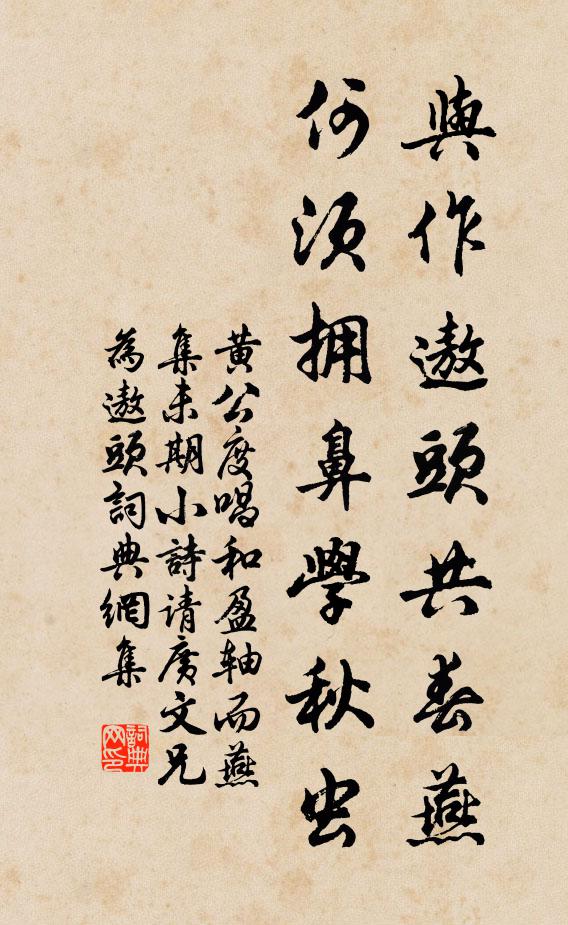 與作遨頭共春燕
何須拥鼻學秋虫
黄公度唱和盈轴而燕
集未期小詩请廣文兄
為遨頭詞典網集
詞典网印